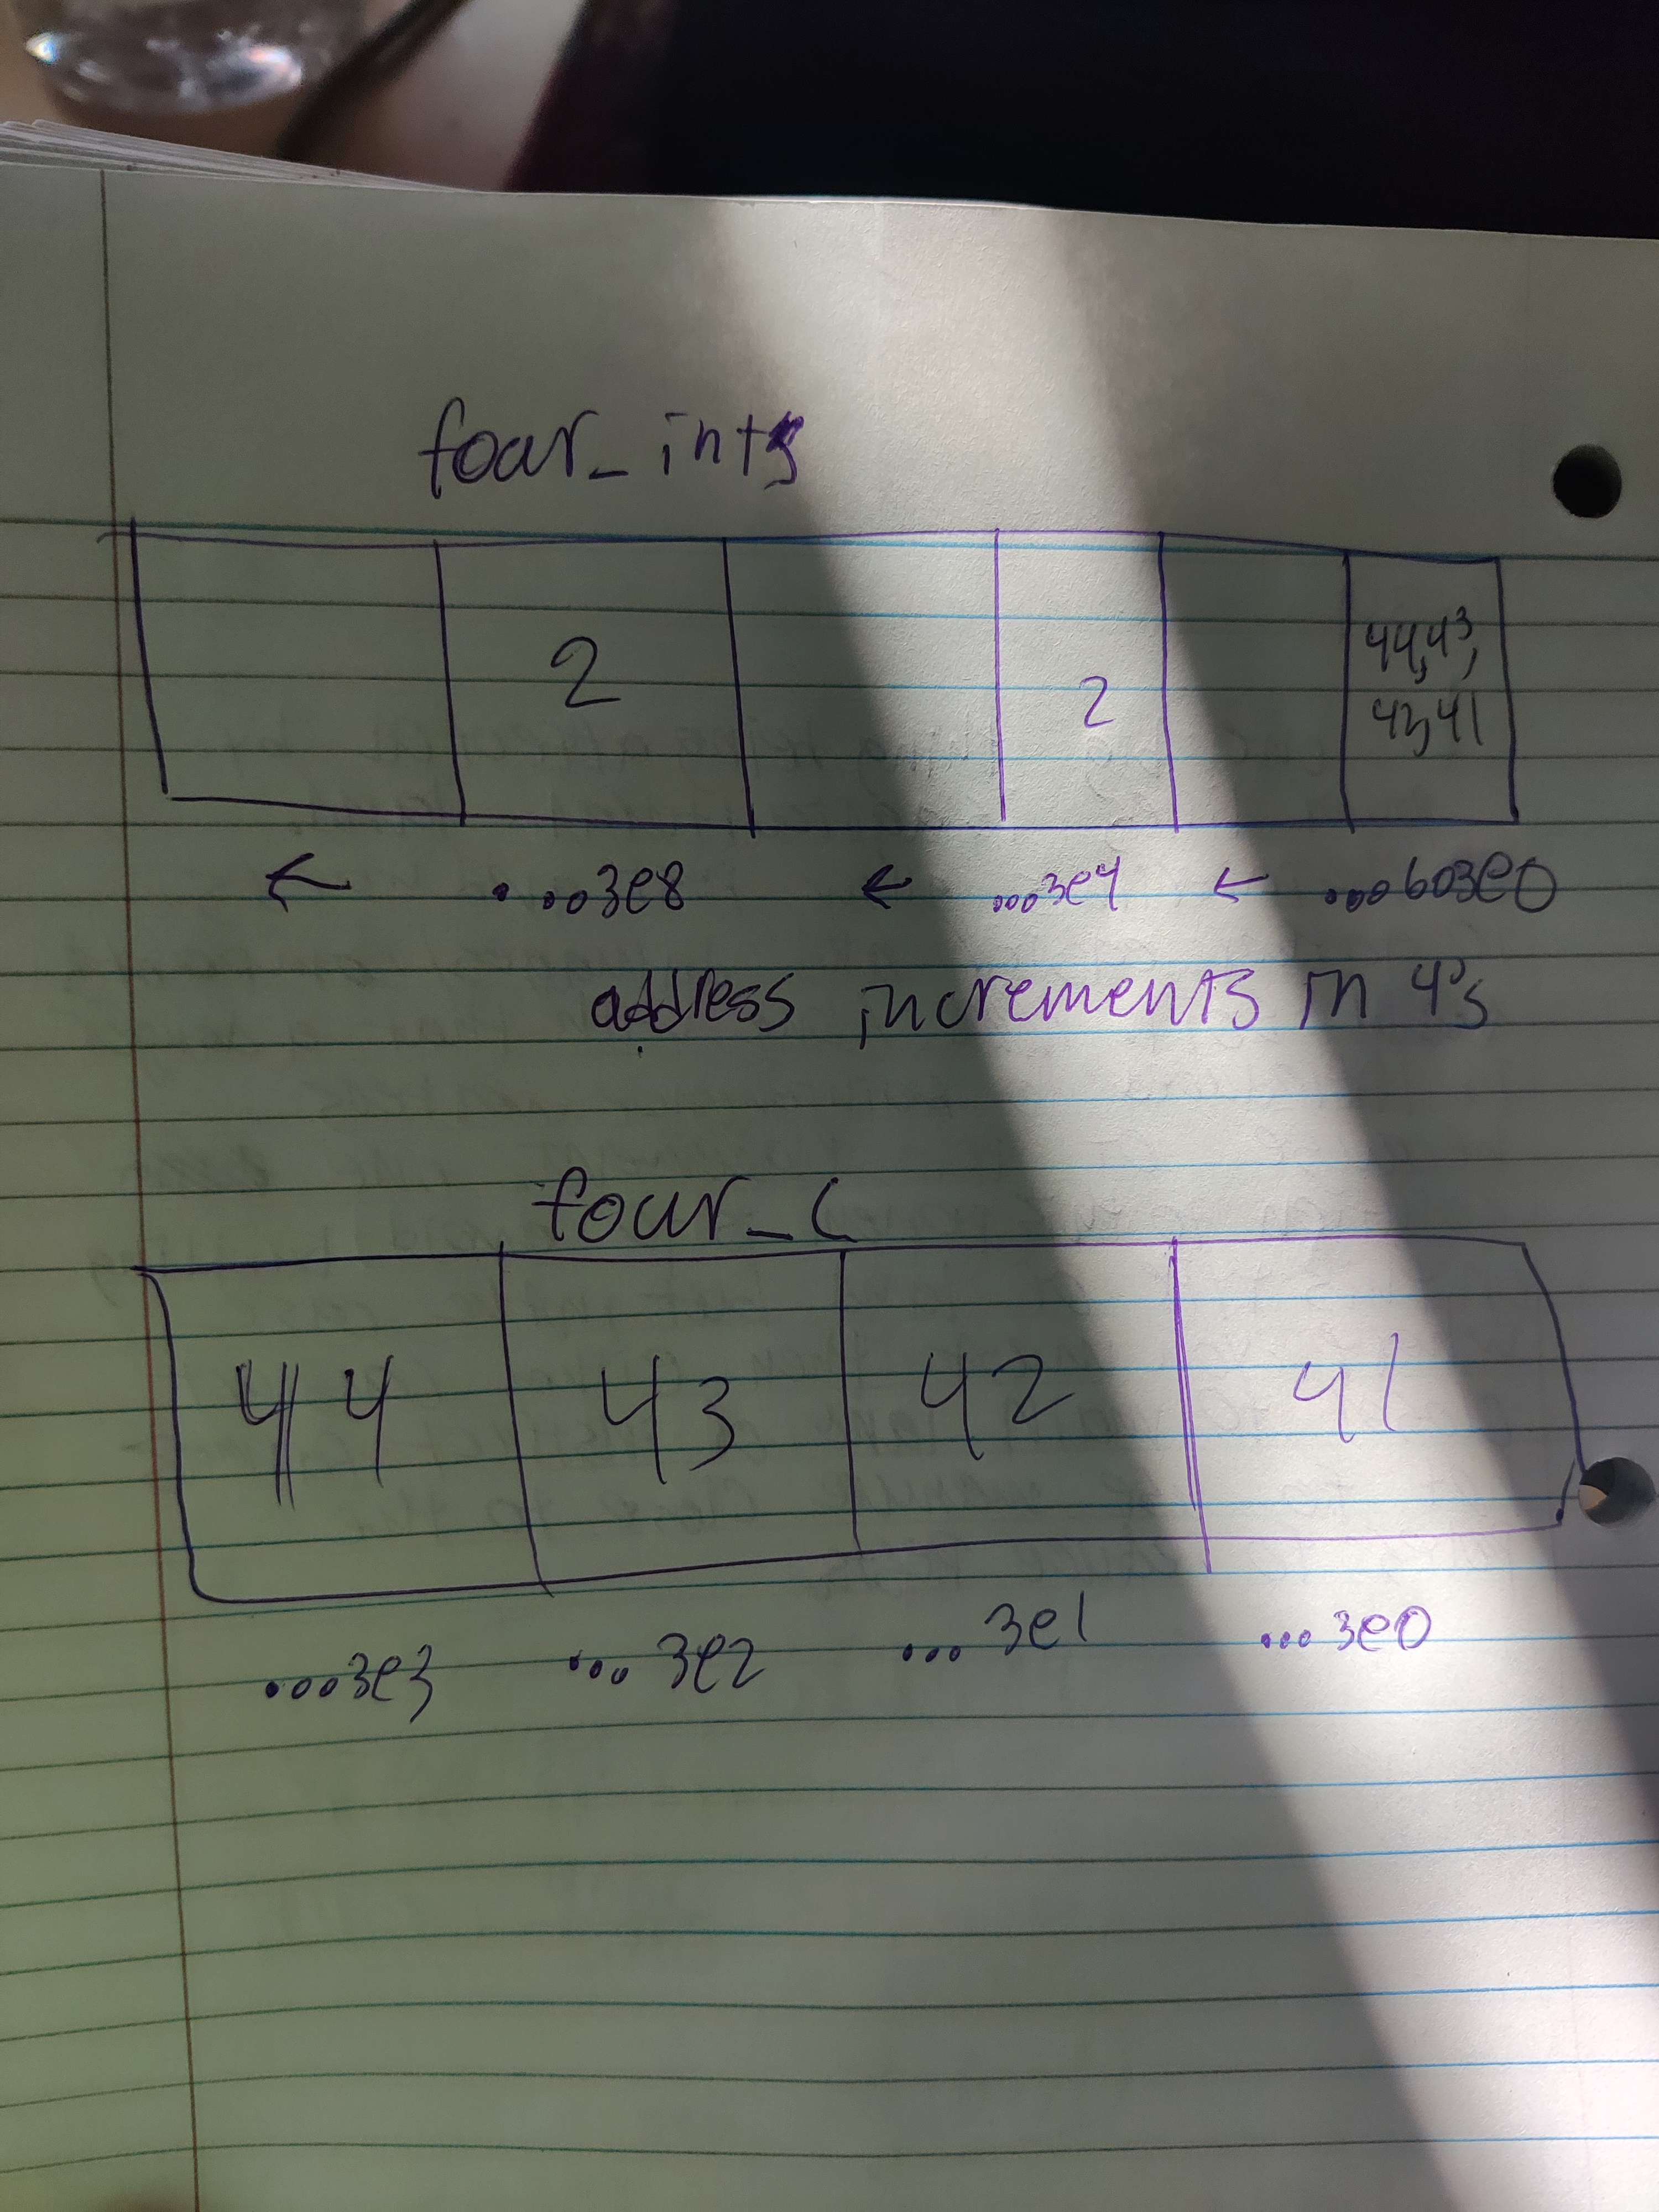 four_ints
2 2 44,43,
42,41
← ...3e8 ← ...3e4 ← ...603e0
address increments in 4's
four_c
44 43 42 41
...3e3 ...3e2 ...3e1 ...3e0